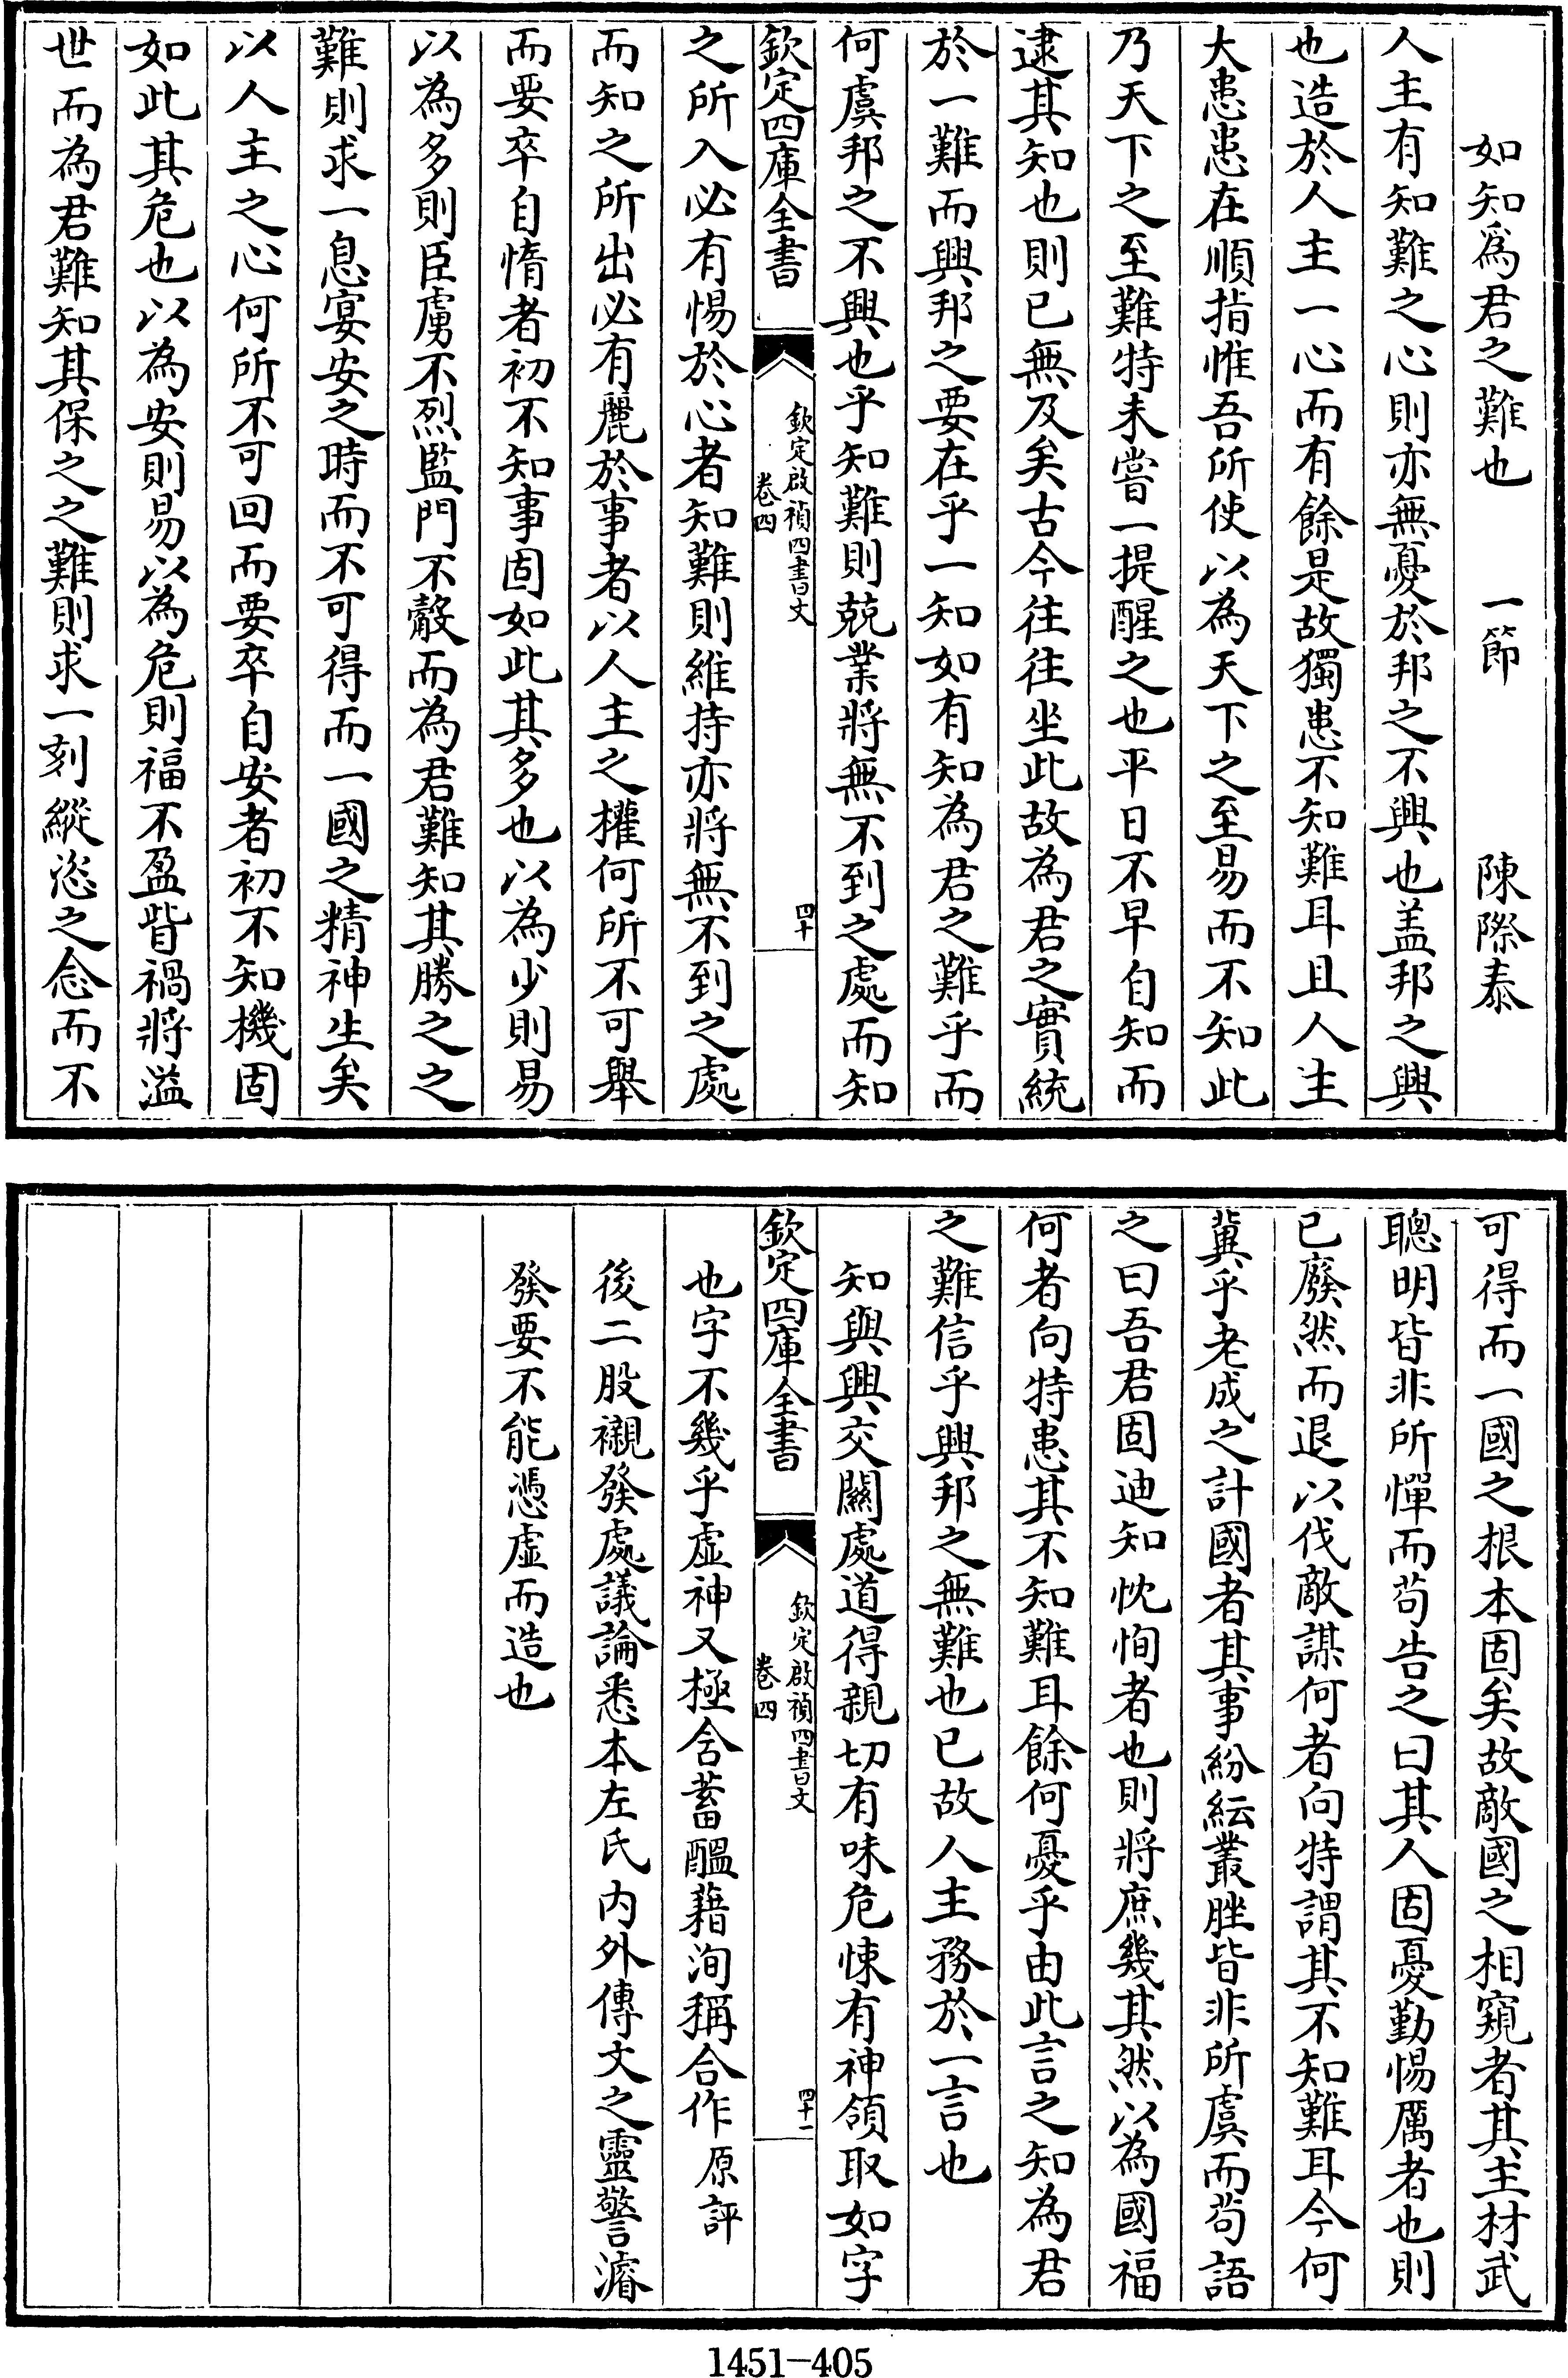 如知爲君之難也 一節 陳際泰
人主有知難之心則亦無憂於邦之不興也盖邦之興
也造於人主一心而有餘是故獨患不知難耳且人主
大患患在順指惟吾所使以為天下之至易而不知此
乃天下之至難特未嘗一提醒之也平日不早自知而
逮其知也則已無及矣古今往往坐此故為君之實統
於一難而興邦之要在乎一知如有知為君之難乎而
何虞邦之不興也乎知難則兢業將無不到之處而知
欽定四庫全書 欽定啟禎四書文 卷四 四十
之所入必有惕於心者知難則維持亦將無不到之處
而知之所出必有麗於事者以人主之權何所不可舉
而要卒自惰者初不知事固如此其多也以為少則易
以為多則臣虜不烈監門不觳而為君難知其勝之之
難則求一息宴安之時而不可得而一國之精神生矣
以人主之心何所不可回而要卒自安者初不知機固
如此其危也以為安則易以為危則福不盈眥禍將溢
世而為君難知其保之之難則求一刻縱恣之念而不
可得而一國之根本固矣故敵國之相窺者其主材武
聰明皆非所憚而茍告之曰其人固憂勤惕厲者也則
已廢然而退以伐敵謀何者向特謂其不知難耳今何
冀乎老成之計國者其事紛紜叢脞皆非所虞而茍語
之曰吾君固迪知忱恂者也則將庶幾其然以為國福
何者向特患其不知難耳餘何憂乎由此言之知為君
之難信乎興邦之無難也已故人主務於一言也
知與興交關處道得親切有味危悚有神領取如字
欽定四庫全書 欽定啟禎四書文 卷四 四十一
也字不幾乎虚神又極含蓄醖藉洵稱合作原評
後二股襯發處議論悉本左氏内外傳文之靈警濬
發要不能憑虚而造也
1451-405